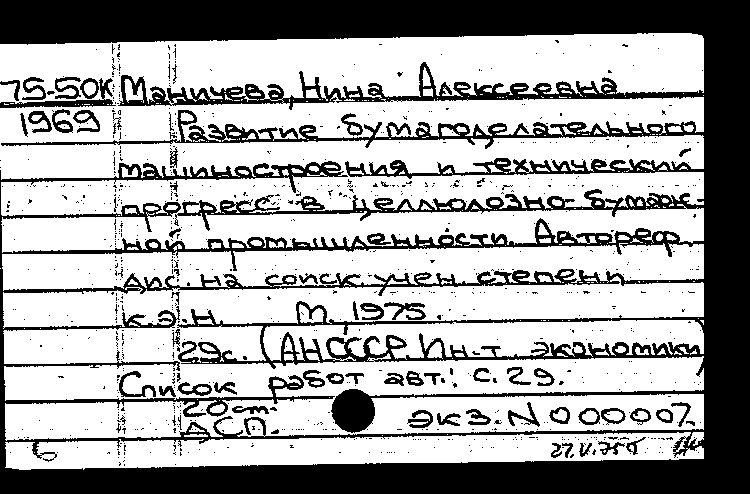 75-50к Маничева, Нина Алексеевна
1969 Развитие бумагоделательного
машиностроения и технический
прогресс в целлюлозно-бумаж-
ной промышленности. Автореф.
дис. на соиск. учен. степени
к.э.н. М., 1975.
29с. (АН СССР. Ин-т экономики)
Список работ авт.: с. 29.
20 cm.
ДСП. экз. N 000007.
6 27.V.75